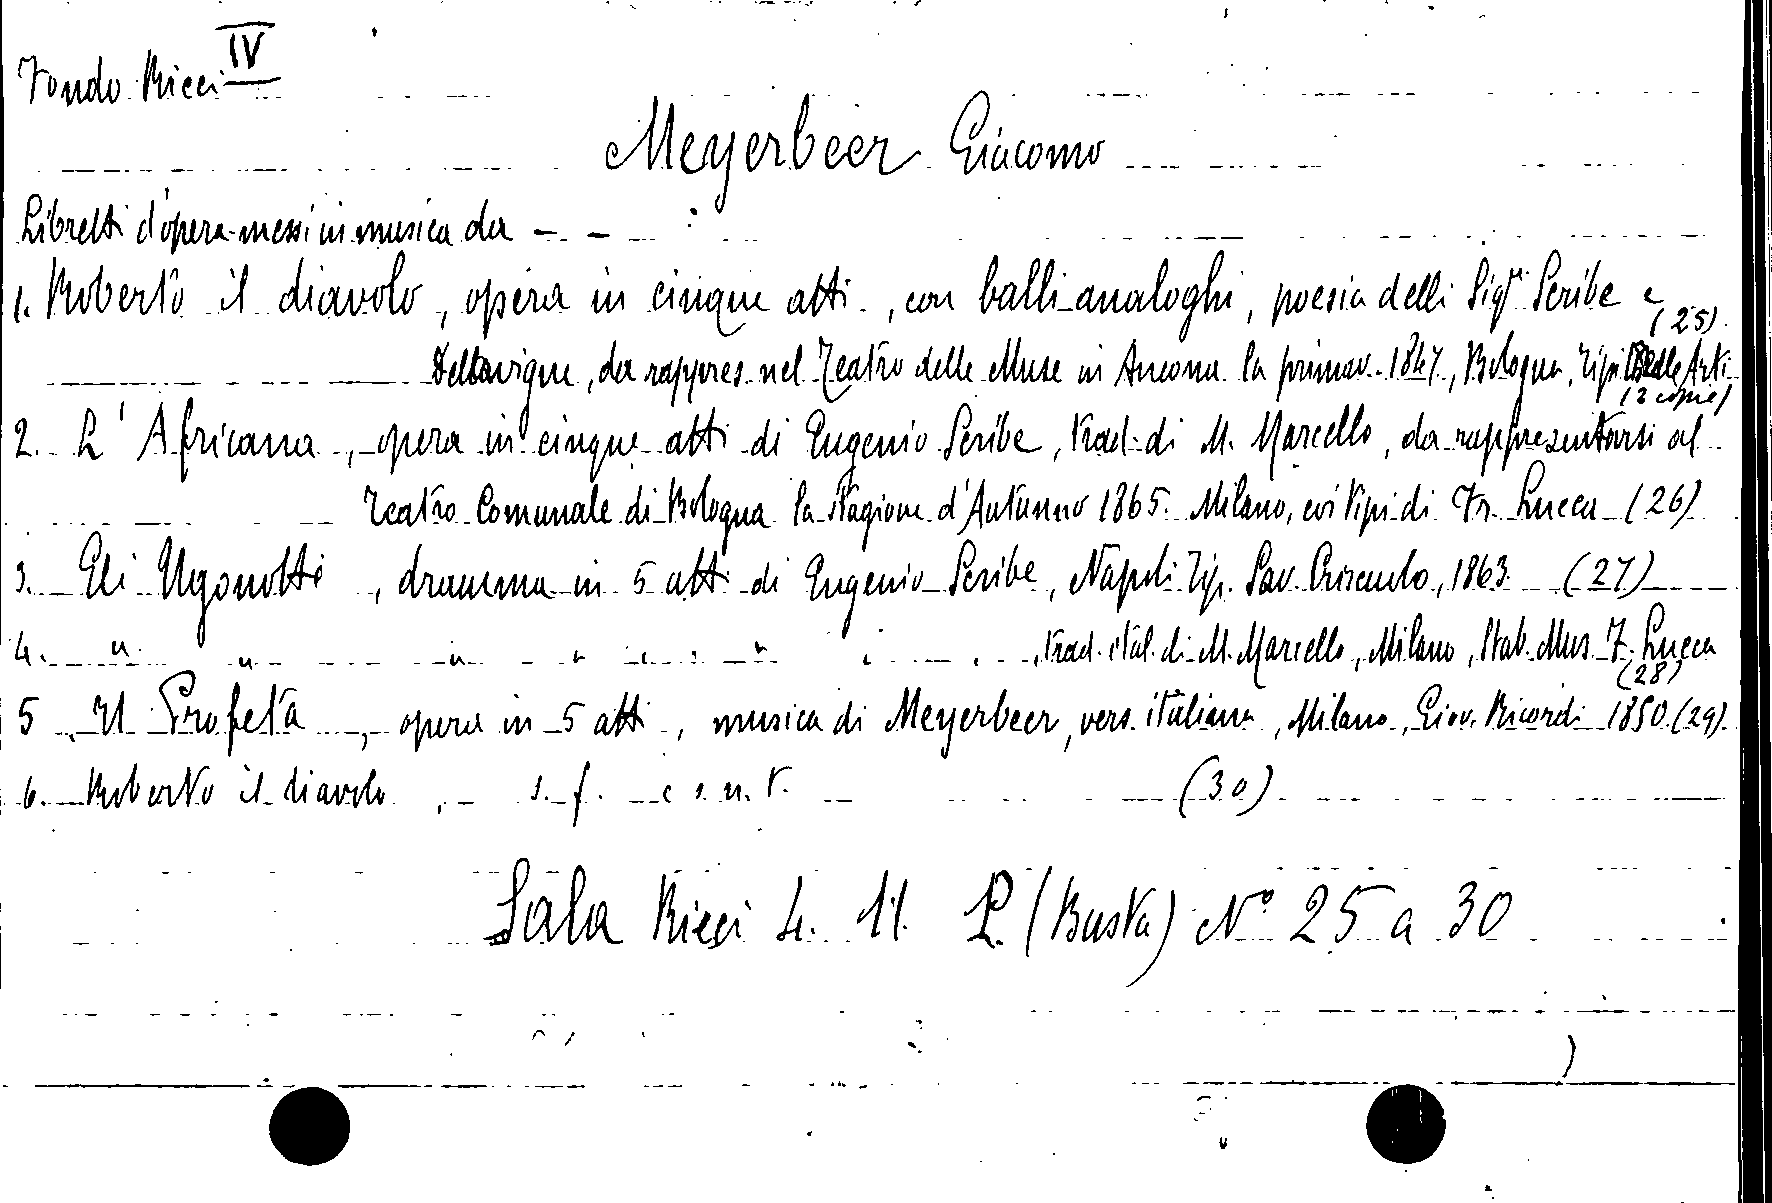 Fondo Ricci IV
Meyerbeer Giacomo
Libretti d'opera messi in musica da - - :
1. Roberto il diavolo, opera in cinque atti, con balli analoghi, poesia delli Sigri Scribe e
(25)
Dellavigne, da rappres. nel Teatro delle Muse in Ancona la primav. 1847, Bologna, Tipi Belle Arti
(2 copie)
2. L'Africana, opera in cinque atti di Eugenio Scribe, trad. di M. Marcello, da rappresentarsi al
Teatro Comunale di Bologna la stagione d'Autunno 1865. Milano, coi tipi di Fr. Lucca (26)
3. Gli Ugonotti, dramma in 5 atti di Eugenio Scribe, Napoli Tip. Sav. 1863 (27)
4. " " " " " , trad. ital. di M. Marcello, Milano, Stab. Mus. F. Lucca
(28)
5. Il Profeta, opera in 5 atti, musica di Meyerbeer, vers. italiana, Milano, Giov. Ricordi 1850. (29)
6. Roberto il diavolo, s. f. e s. n. t. (30)
Sala Ricci 4. 11. P. (Busta) N° 25 a 30